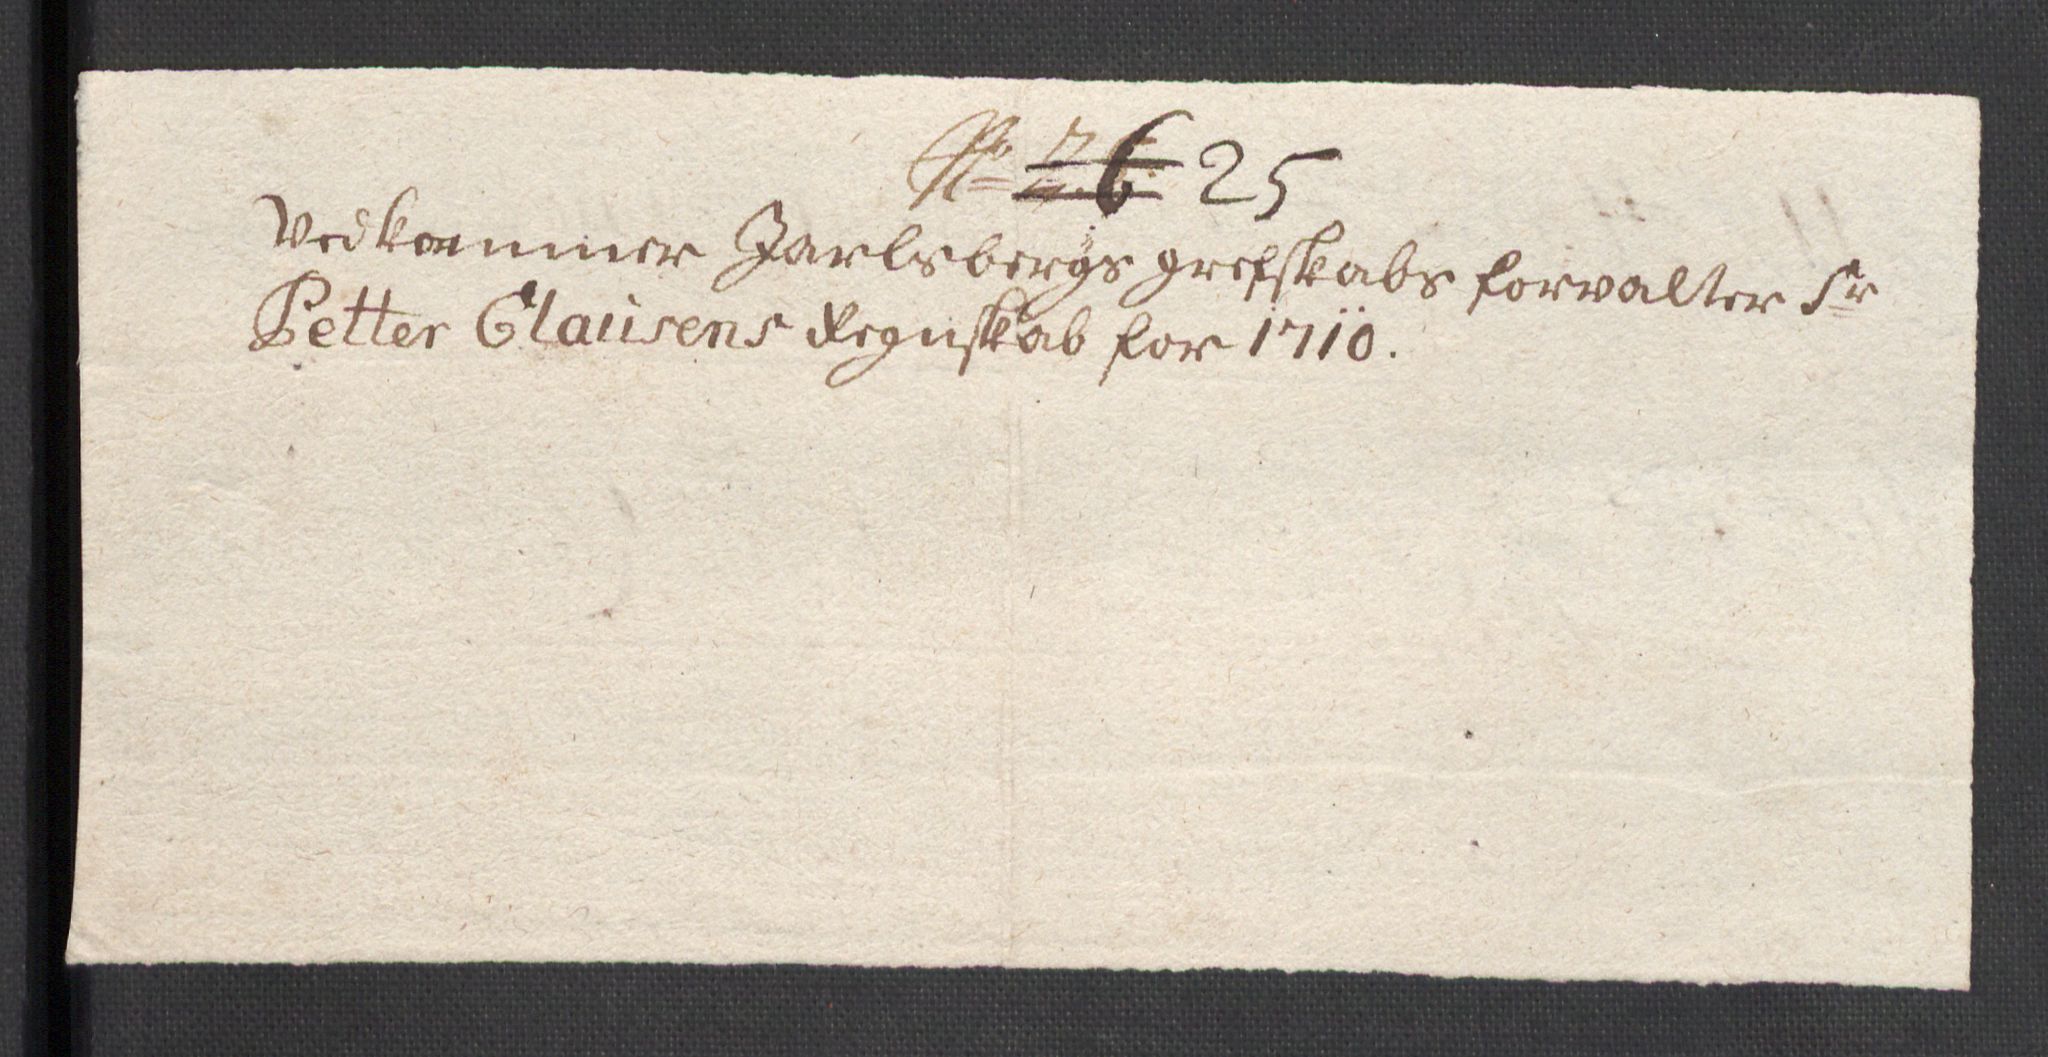 No 25
Vedkommer Jarlsbergs grefskabs forvalter Sr
Petter Clausens Regnskab for 1710.